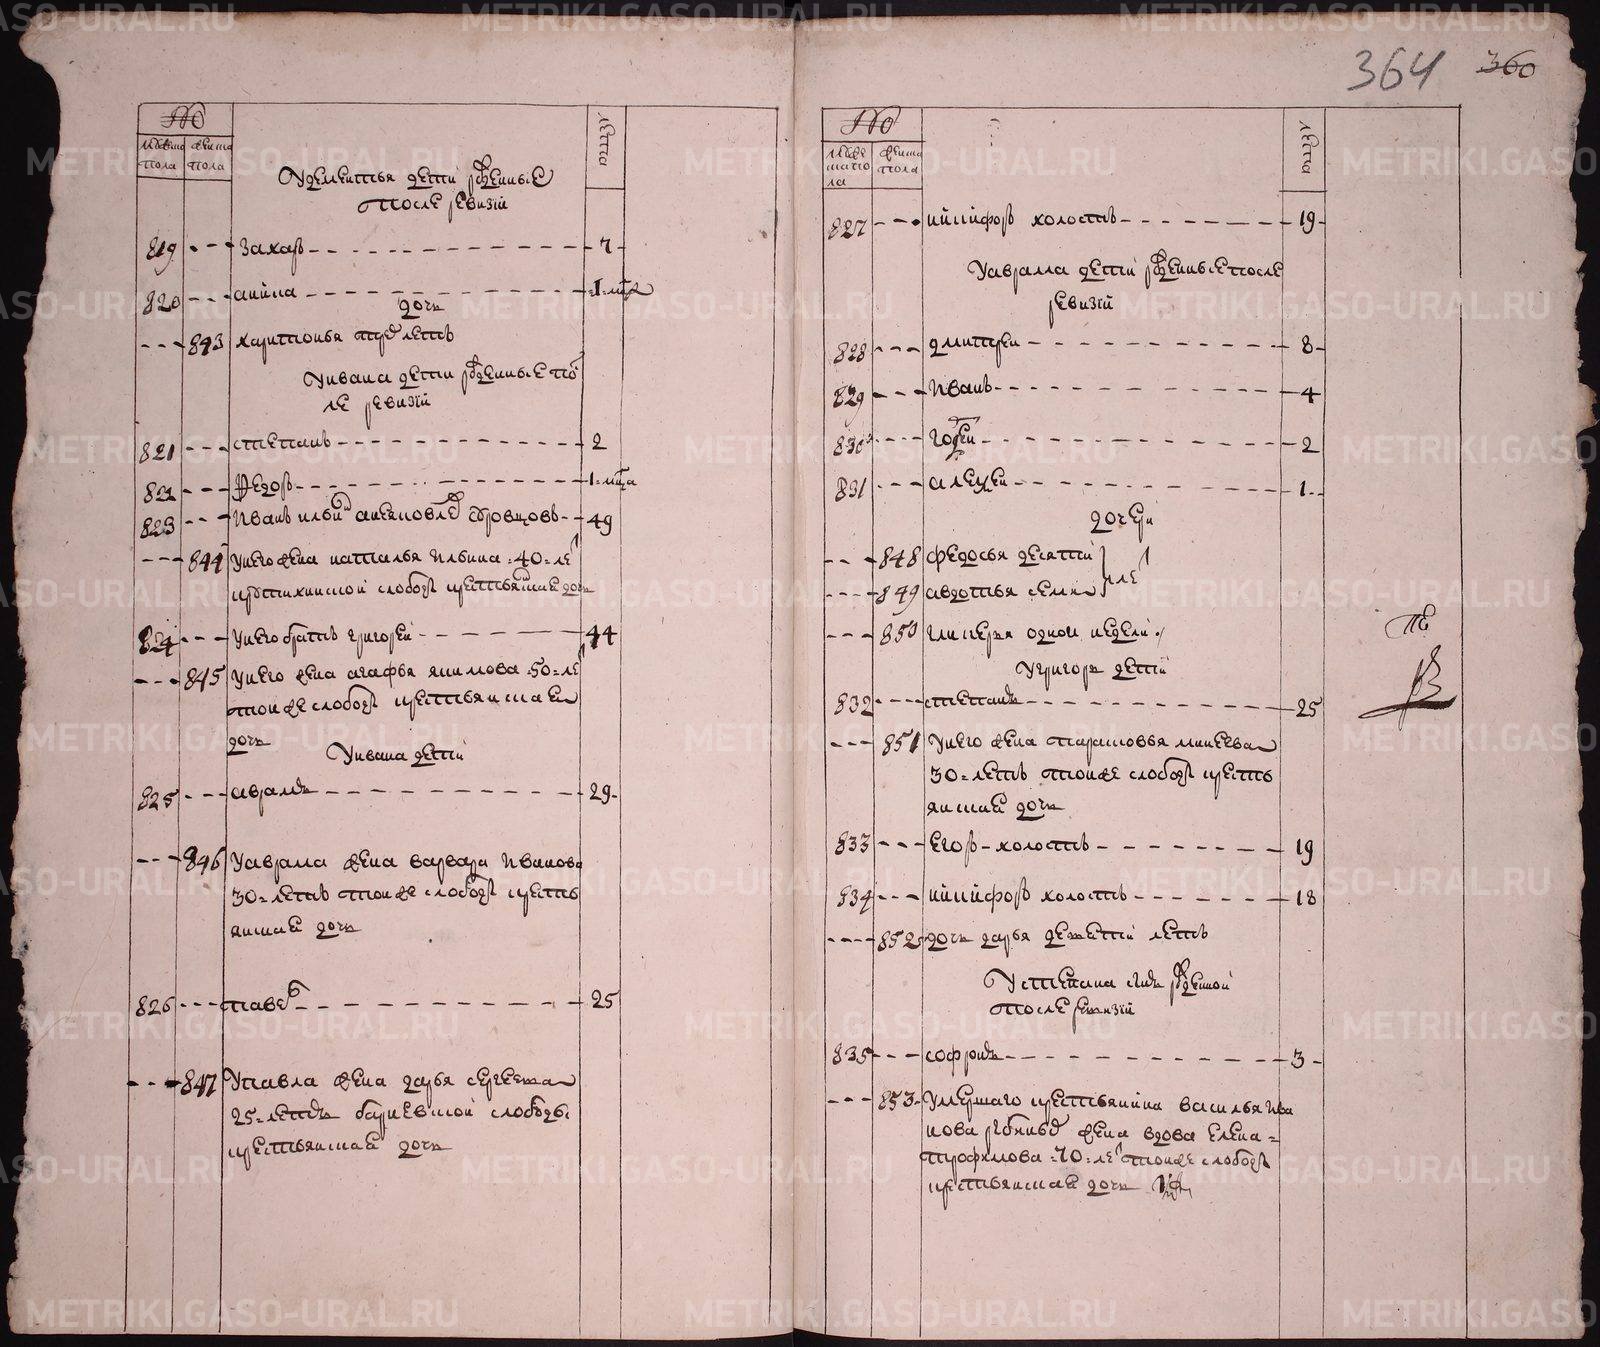 364 360
№
мужеска пола
женска пола
лета
У дементья дети рожденные
после ревизiи
819 захаръ 7
820 анина 1
дочь
843 харитонья трех летъ
У ивана дети рожденные по
ле ревизiи
821 степанъ 2
822 Федоръ 1
823 Иванъ ильин 49
844 У него жена наталья ильина 40 ле
слободы крестьянская дочь
824 У него братъ григорей 44
845 У него жена агафья якимова 50 ле
той же слободы крестьянская
дочь
У ивана дети
825 аврамъ 29
846 У аврама жена варвара Иванова
30 летъ той же слободы кресть
янская дочь
826 павел 25
847 У павла жена дарья сергеева
25 летъ слободы
крестьянская дочь
№
мужеска пола
женска пола
лета
827 никифоръ холостъ 19
У аврама дети рожденные после
ревизiи
828 дмитреи 8
829 Иванъ 4
830 гордеи 2
831 алексеи 1
дочери
848 федосья десяти
849 авдотья семи
ле
850 гликерья одной недели
У григорья дети
832 степанъ 25
851 У него жена парасковья минеева
30 летъ той же слободы кресть
янская дочь
833 Егоръ холостъ 19
834 никифоръ холостъ 18
852 дочь дарья девяти летъ
У степана сынъ рожденной
после ревизiи
835 софронъ 3
853 Умершаго крестьянина василья Ива
нова жена вдова елена
трофимова 70 ле той же слободы
крестьянская дочь